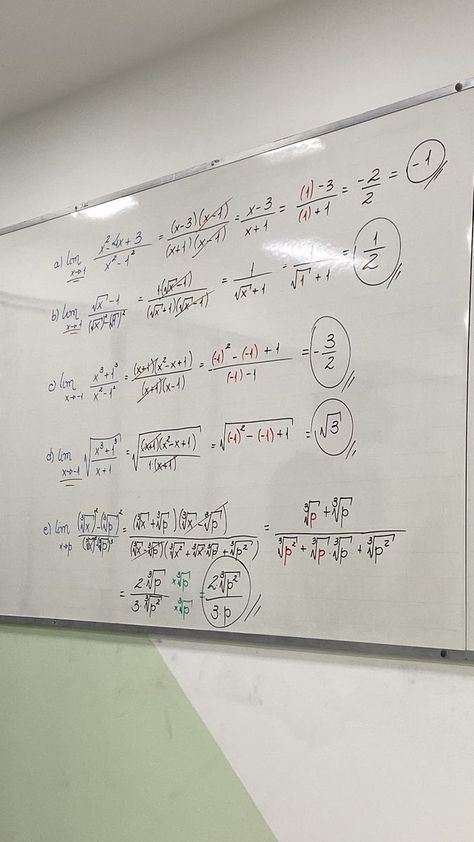 a) lim x→1 (x² - 4x + 3)/(x² - 1²) = ((x-3)(x-1))/((x+1)(x-1)) = (x-3)/(x+1) = ((1)-3)/((1)+1) = -2/2 = -1
b) lim x→1 (√x - 1)/((√x)² - (√1)²) = (1(√x - 1))/((√x + 1)(√x - 1)) = 1/(√x + 1) = 1/(√1 + 1) = 1/2
c) lim x→-1 (x³ + 1³)/(x² - 1²) = ((x+1)(x² - x + 1))/((x+1)(x-1)) = ((-1)² - (-1) + 1)/((-1) - 1) = -3/2
d) lim x→-1 √((x³ + 1³)/(x+1)) = √(((x+1)(x² - x + 1))/(1(x+1))) = √((-1)² - (-1) + 1) = √3
e) lim x→p ((∛x)² - (∛p)²)/((∛x)³ - (∛p)³) = ((∛x + ∛p)(∛x - ∛p))/((∛x - ∛p)(∛x² + ∛x·∛p + ∛p²)) = (∛p + ∛p)/(∛p² + ∛p·∛p + ∛p²)
= (2∛p)/(3·∛p²) ×∛p/×∛p = (2∛p²)/(3·p)